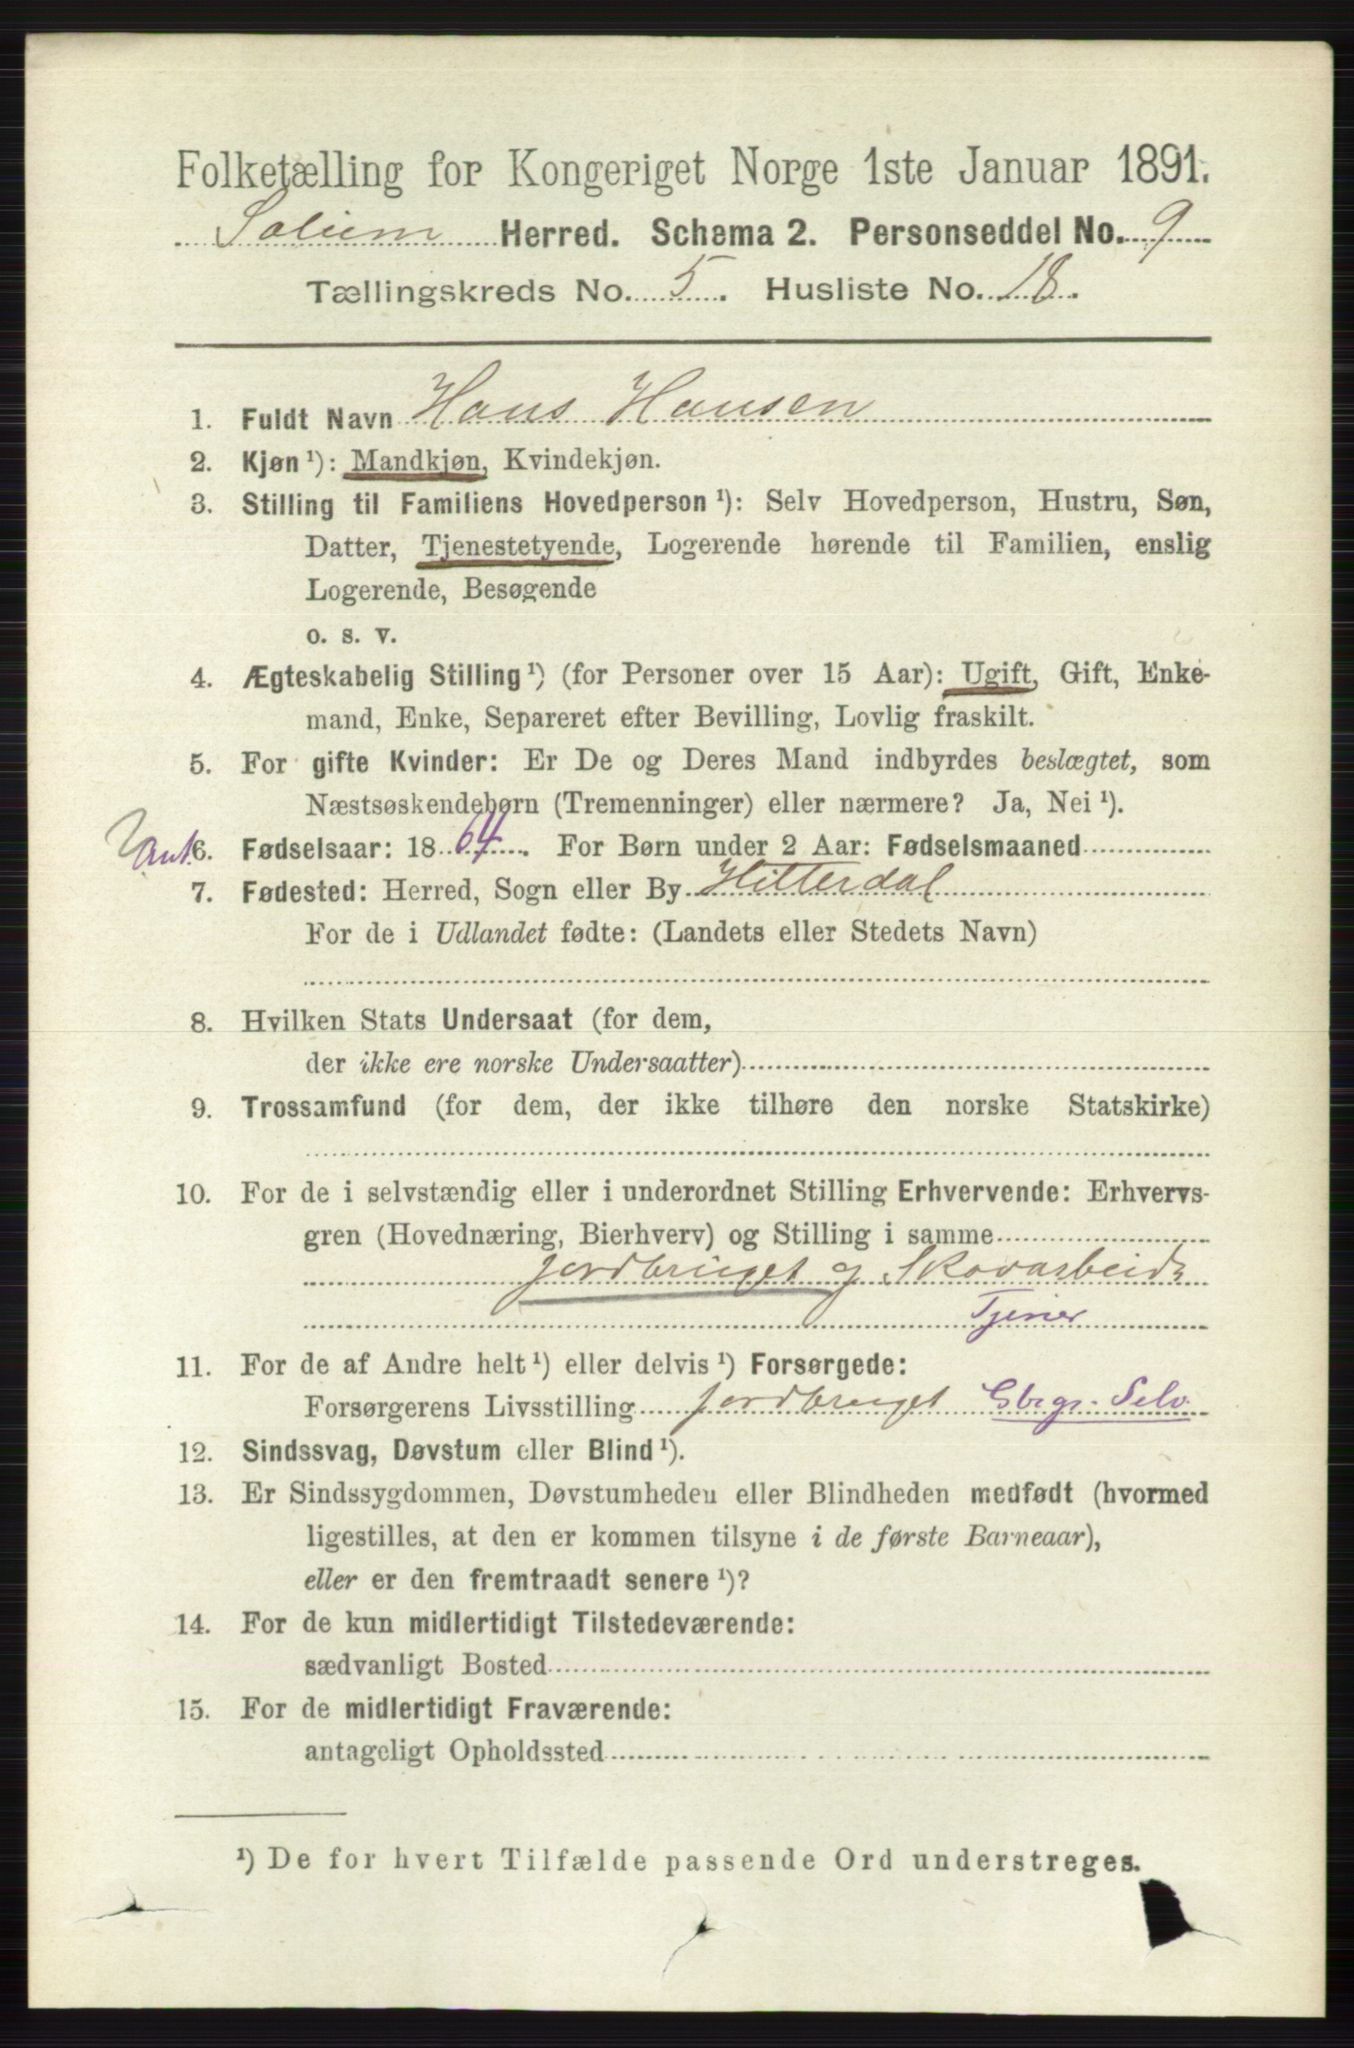 Folketælling for Kongeriget Norge 1ste Januar 1891.
Solum Herred. Schema 2. Personseddel No. 9
Tællingskreds No. 5. Husliste No. 18.
1. Fuldt Navn Hans Hansen
2. Kjøn ¹): Mandkjøn, Kvindekjøn.
3. Stilling til Familiens Hovedperson ¹): Selv Hovedperson, Hustru, Søn,
Datter, Tjenestetyende, Logerende hørende til Familien, enslig
Logerende, Besøgende
o. s. v.
4. Ægteskabelig Stilling ¹) (for Personer over 15 Aar): Ugift, Gift, Enke-
mand, Enke, Separeret efter Bevilling, Lovlig fraskilt.
5. For gifte Kvinder: Er De og Deres Mand indbyrdes beslægtet, som
Næstsøskendebørn (Tremenninger) eller nærmere? Ja, Nei ¹).
Ant. 6. Fødselsaar: 1864. For Børn under 2 Aar: Fødselsmaaned
7. Fødested: Herred, Sogn eller By Hitterdal
For de i Udlandet fødte: (Landets eller Stedets Navn)
8. Hvilken Stats Undersaat (for dem,
der ikke ere norske Undersaatter)
9. Trossamfund (for dem, der ikke tilhøre den norske Statskirke)
10. For de i selvstændig eller i underordnet Stilling Erhvervende: Erhvervs-
gren (Hovednæring, Bierhverv) og Stilling i samme
jordbruget og Skovarbeide
Tjener
11. For de af Andre helt ¹) eller delvis ¹) Forsørgede:
Forsørgerens Livsstilling jordbruget Gbrgr. Selv
12. Sindssvag, Døvstum eller Blind ¹).
13. Er Sindssygdommen, Døvstumheden eller Blindheden medfødt (hvormed
ligestilles, at den er kommen tilsyne i de første Barneaar),
eller er den fremtraadt senere ¹)?
14. For de kun midlertidigt Tilstedeværende:
sædvanligt Bosted
15. For de midlertidigt Fraværende:
antageligt Opholdssted
¹) De for hvert Tilfælde passende Ord understreges.